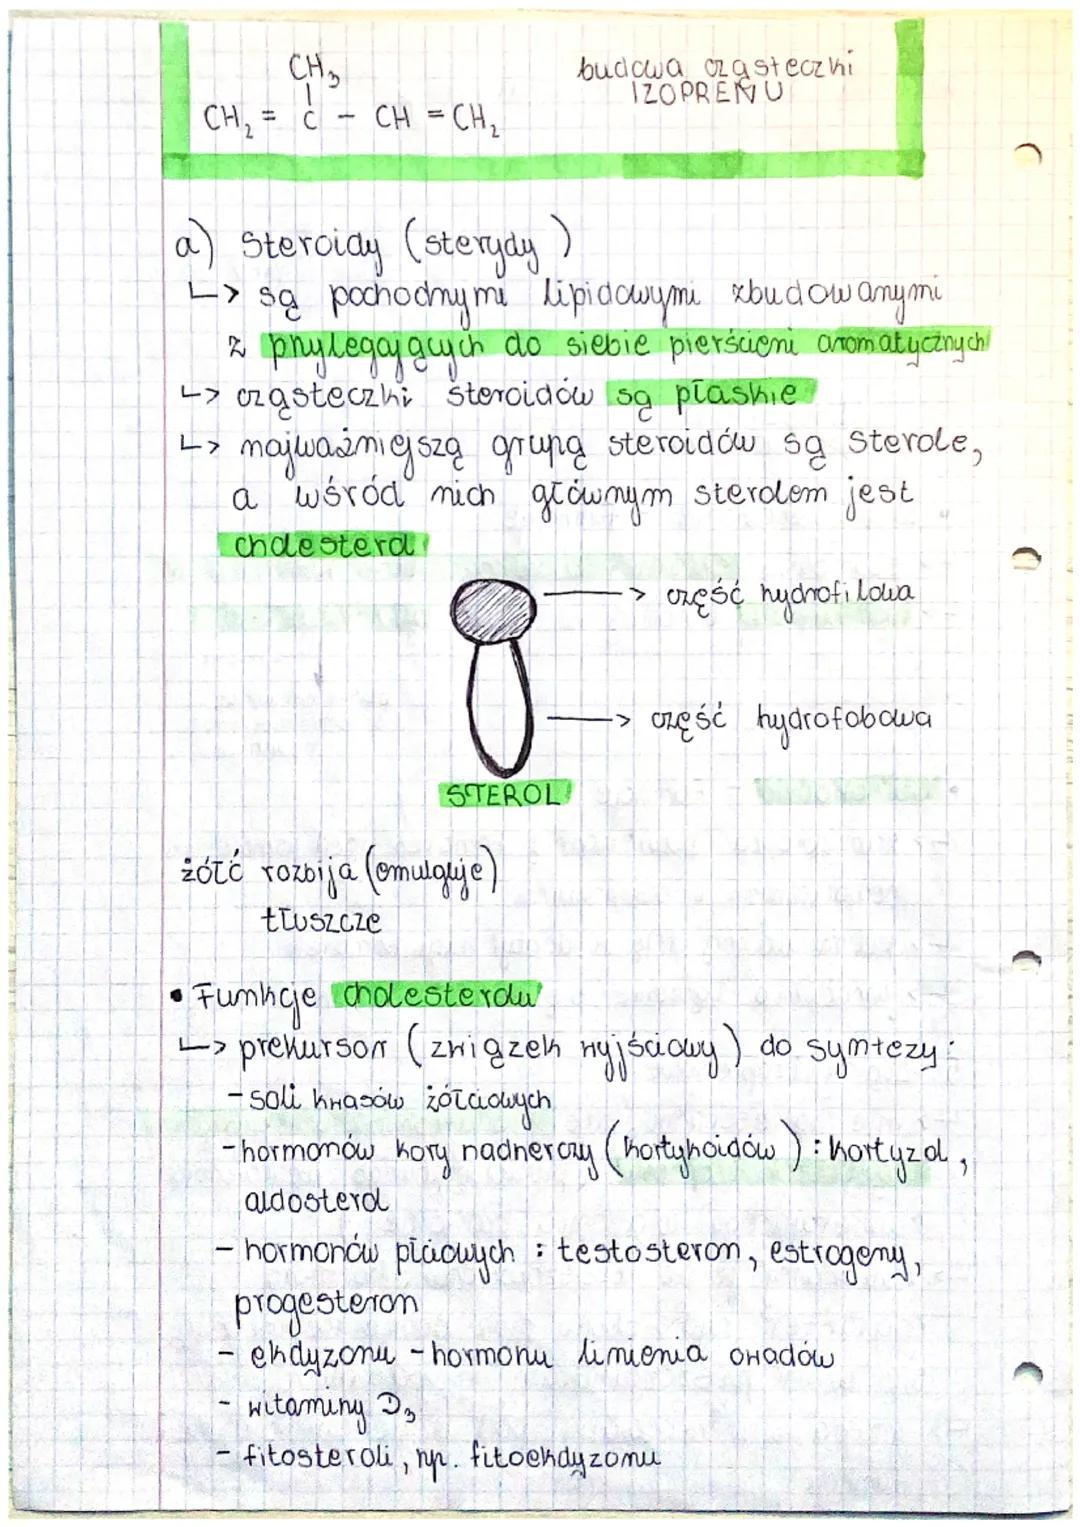 CH₃
|
CH₂ = C - CH = CH₂
budowa cząsteczki
IZOPRENU
a) Steroidy (sterydy)
↳ są pochodnymi lipidowymi zbudowanymi
z przylegających do siebie pierścieni aromatycznych
↳ cząsteczki steroidów są płaskie
↳ najważniejszą grupą steroidów są sterole,
a wśród nich głównym sterolem jest
cholesterol
→ część hydrofilowa
→ część hydrofobowa
STEROL
żółć rozbija (emulguje)
tłuszcze
• Funkcje cholesterolu
↳ prekursor (związek wyjściowy) do syntezy:
- soli kwasów żółciowych
- hormonów kory nadnerczy (kortykoidów): kortyzol,
aldosterol
- hormonów płciowych : testosteron, estrogeny,
progesteron
- ekdyzonu - hormonu linienia owadów
- witaminy D₃
- fitosteroli, np. fitoekdyzonu